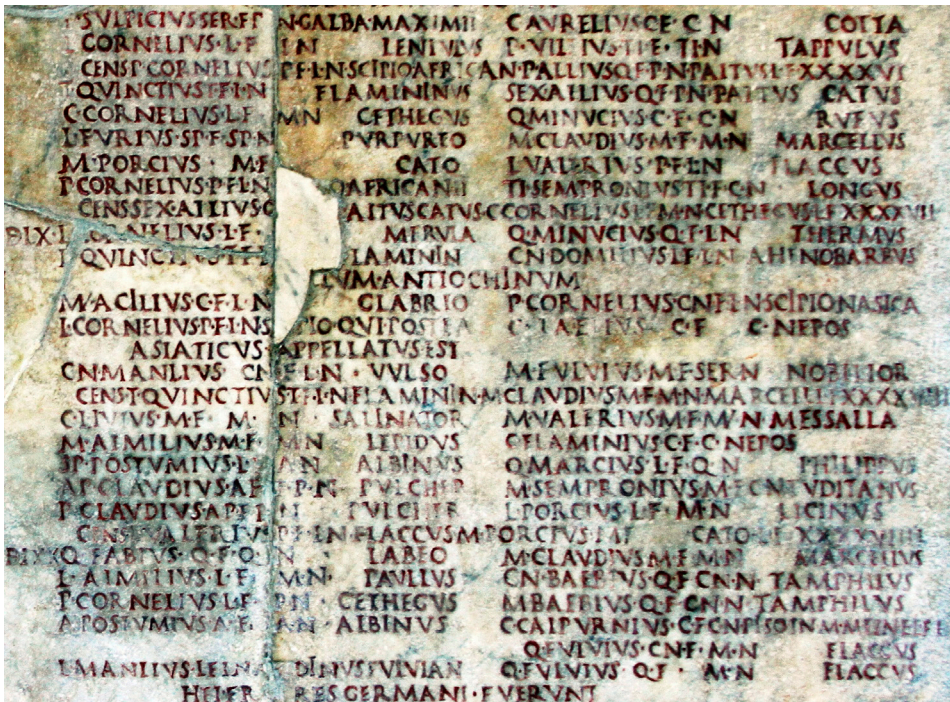 P·SVLPICIVS·SER·F·P·N·GALBA·MAXIMII C·AVRELIVS·C·F·C·N COTTA
L·CORNELIVS·L·F L·N LENTVLVS P·VILLIVS·TI·F·TI·N TAPPVLVS
CENS·P·CORNELIVS P·F·L·N·SCIPIO·AFRICAN·P·AILIVS·Q·F·P·N·PAITVS·L·F·XXXXVI
T·QVINCTIVS·T·F·L·N FLAMININVS SEX·AILIVS·Q·F·P·N·PAITVS CATVS
C·CORNELIVS·L·F M·N CETHEGVS Q·MINVCIVS·C·F·C·N RVFVS
L·FVRIVS·SP·F·SP·N PVRPVREO M·CLAVDIVS·M·F·M·N MARCELLVS
M·PORCIVS·M·F CATO L·VALERIVS·P·F·L·N FLACCVS
P·CORNELIVS·P·F·L·N AFRICAN·II TI·SEMPRONIVS·TI·F·C·N LONGVS
CENS·SEX·AILIVS·Q AITVS·CATVS·C·CORNELIVS·L·F·M·N·CETHEGVS·L·F·XXXXVII
DLX·L·CORNELIVS·L·F· MERVLA Q·MINVCIVS·Q·F·L·N THERMVS
L·QVINCTIVS·T·F·L LAMININ CN·DOMITIVS·L·F·L·N·AHENOBARBVS
LVM·ANTIOCHINVM
M·ACILIVS·C·F·L·N GLABRIO P·CORNELIVS·CN·F·L·N·SCIPIO·NASICA
L·CORNELIVS·P·F·L·N·S PIO·QVI·POSTEA C·LAELIVS·C·F C·NEPOS
ASIATICVS·APPELLATVS·EST
CN·MANLIVS CN·F·L·N·VVLSO M·FVLVIVS·M·F·SER·N NOBILIOR
CENS·T·QVINCTIVS·T·F·L·N·FLAMININ·M·CLAVDIVS·M·F·M·N·MARCELL·L·F·XXXXVIII
C·LIVIVS·M·F·M·N SALINATOR M·VALERIVS·M·F·M·N·MESSALLA
M·AIMILIVS·M·F M·N LEPIDVS C·FLAMINIVS·C·F·C·NEPOS
SP·POSTVMIVS·L·F A·N ALBINVS Q·MARCIVS·L·F·Q·N PHILIPPVS
AP·CLAVDIVS·AP·F P·N PVLCHER M·SEMPRONIVS·M·F·C·N TVDITANVS
P·CLAVDIVS·AP·F P·N PVLCHER L·PORCIVS·L·F·M·N LICINVS
CENS·L·VALERIVS P·F·L·N·FLACCVS·M·PORCIVS·M·F CATO·L·F·XXXXVIIII
DLXX·Q·FABIVS·Q·F·Q·N LABEO M·CLAVDIVS·M·F·M·N MARCELLVS
L·AIMILIVS·L·F M·N· PAVLLVS CN·BAEBIVS·Q·F·CN·N·TAMPHILVS
P·CORNELIVS·L·F P·N·CETHEGVS M·BAEBIVS·Q·F·CN·N·TAMPHILVS
A·POSTVMIVS·A·F·A·N·ALBINVS C·CALPVRNIVS·C·F·C·N·PISO·IN·M·M·E
Q·FVLVIVS·CN·F·M·N FLACCVS
L·MANLIVS·L·F·L·N·A DINVS·FVLVIAN Q·FVLVIVS·Q·F·M·N FLACCVS
HEI·F RES·GERMANI·FVERVNT